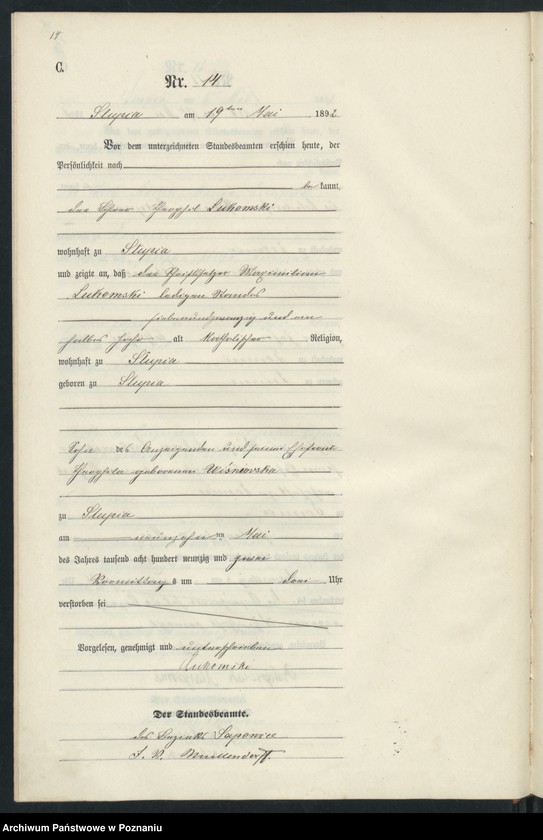 19
C.
Nr. 14
Slupia am 19ten Mai 1892
Vor dem unterzeichneten Standesbeamten erschien heute, der
Persönlichkeit nach
be kannt,
der Lehrer Theophil Lukomski
wohnhaft zu Slupia
und zeigte an, daß der Maximilian
Lukomski ledigen Standes
siebenundzwanzig und ein
halbes Jahr alt katholischer Religion,
wohnhaft zu Slupia
geboren zu Slupia
Sohn des Anzeigenden und seiner Ehefrau
Theophila geborenen Wisniewska
zu Slupia
am neunzehnten Mai
des Jahres tausend acht hundert neunzig und zwei
Vormittags um drei Uhr
verstorben sei
Vorgelesen, genehmigt und unterschrieben
Lukomski
Der Standesbeamte.
des Bezirks
I. V.
Archiwum Państwowe w Poznaniu